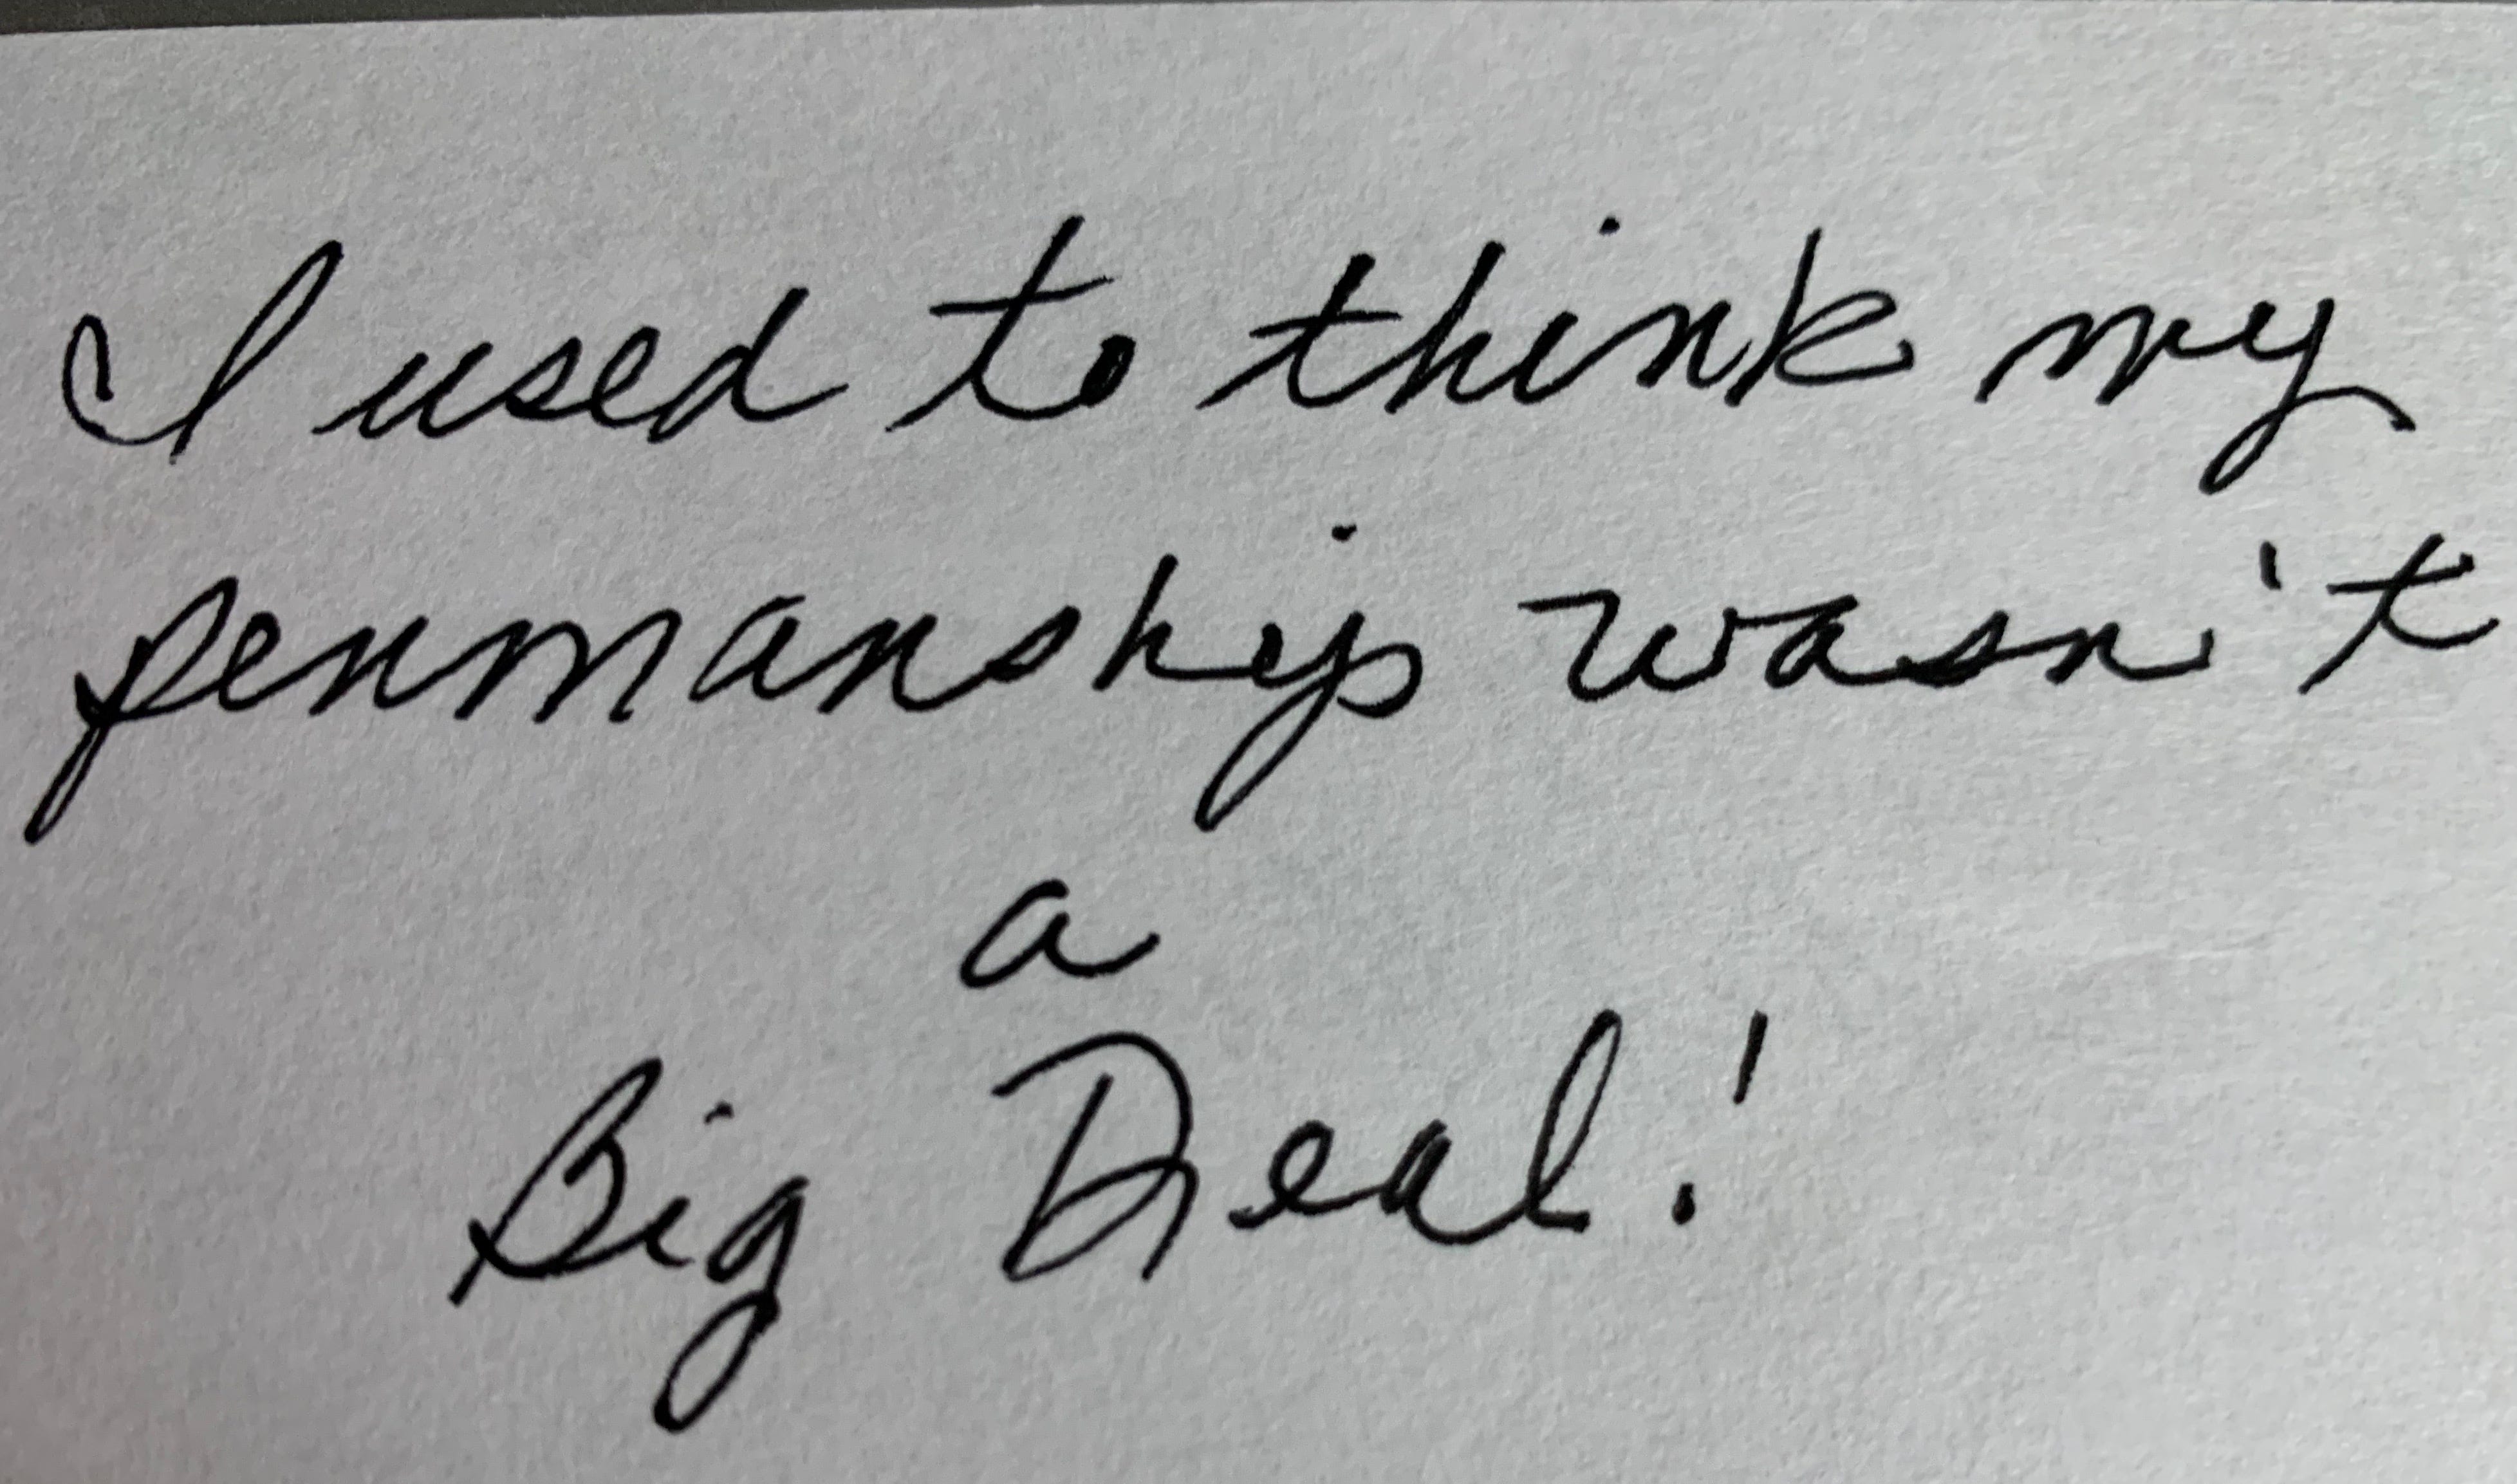 I used to think my
penmanship wasn't
a
Big Deal!